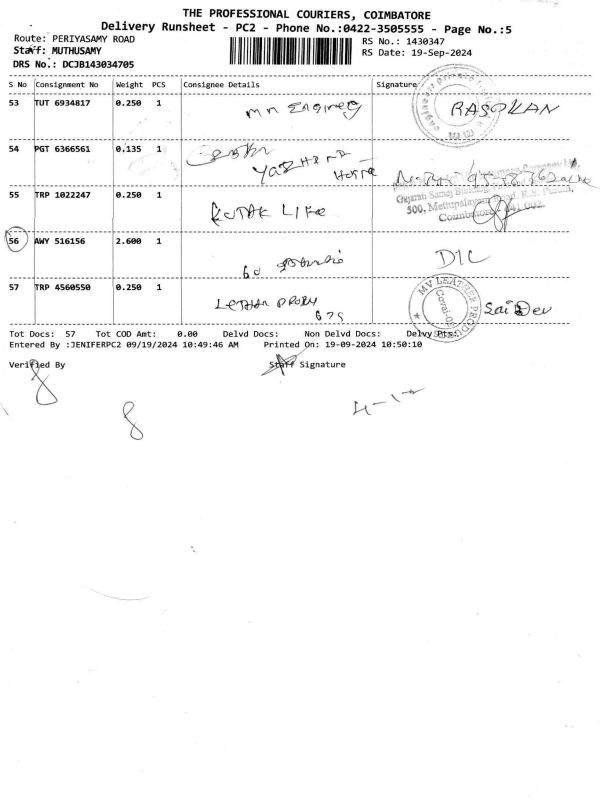 THE PROFESSIONAL COURIERS, COIMBATORE
Delivery Runsheet - PC2 - Phone No.:0422-3505555 - Page No.:5
Route: PERIYASAMY ROAD
RS No.: 1430347
Staff: MUTHUSAMY
RS Date: 19-Sep-2024
DRS No.: DCJB143034705
S No Consignment No Weight PCS Consignee Details Signature
53 TUT 6934817 0.250 1 RASOKAN
54 PGT 6366561 0.135 1
500, Mettupalayam Road, R.S. Puram,
Coimbatore
55 TRP 1022247 0.250 1 KOTAK LIFE
56 AWY 516156 2.600 1 DIC
57 TRP 4560550 0.250 1 Sai Dev
MV LEATHER PROD
Tot Docs: 57 Tot COD Amt: 0.00 Delvd Docs: Non Delvd Docs: Delvy Pts:
Entered By :JENIFERPC2 09/19/2024 10:49:46 AM Printed On: 19-09-2024 10:50:10
Verified By Staff Signature